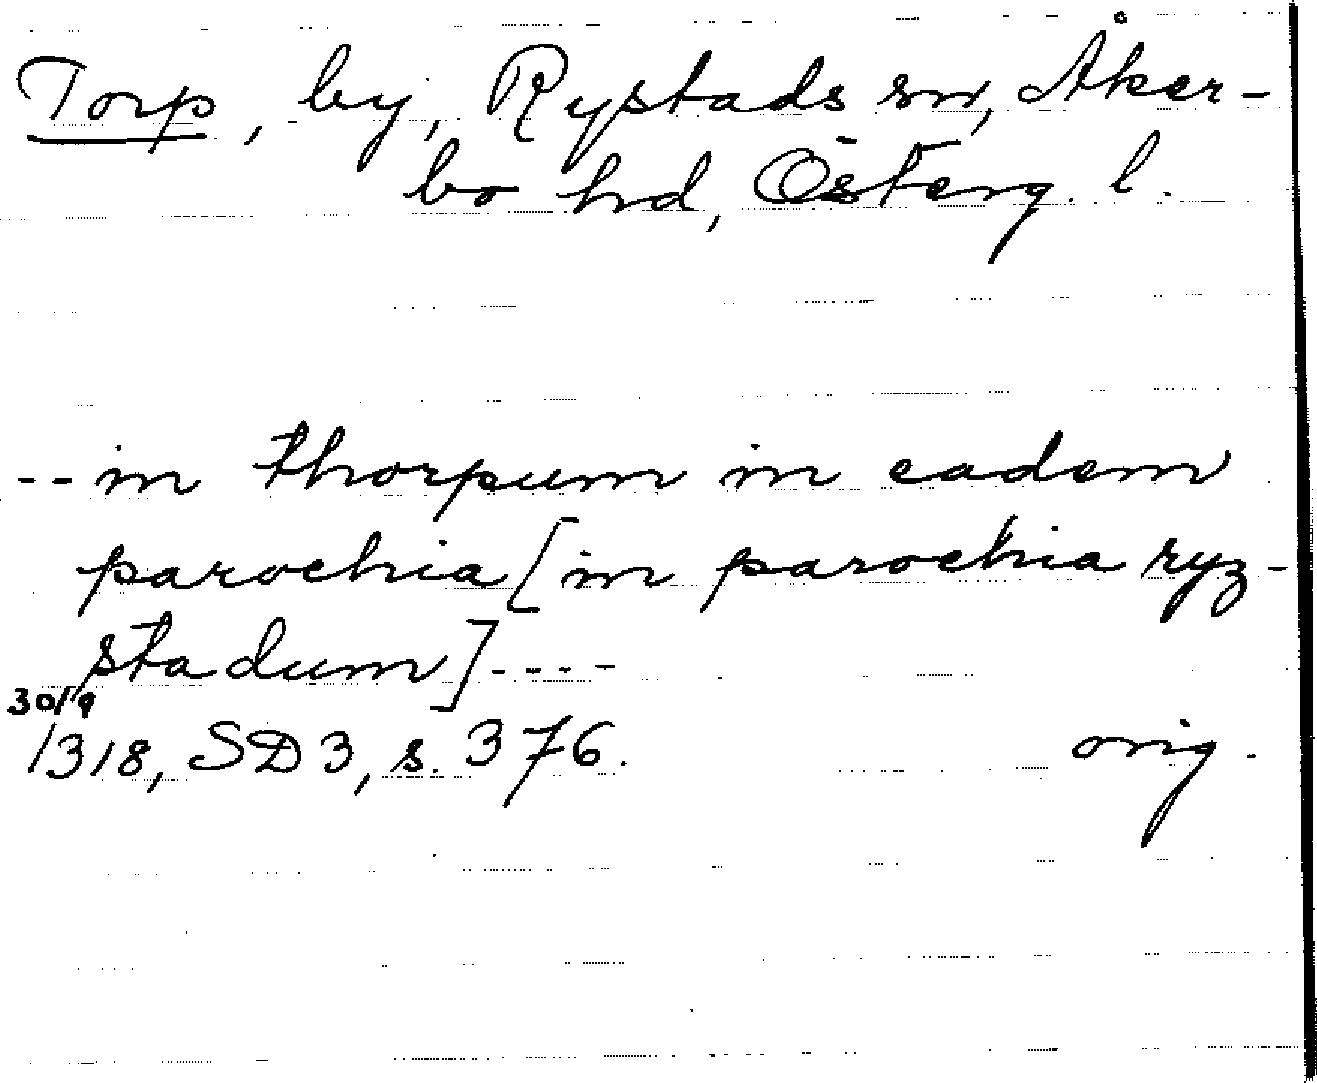 Torp, by, Rystads sn, Åker-
bo hd, Österg. l.
-- in thorpum in eadem
parochia [in parochia ryz-
stadum] ----
30/9
1318, SD 3, s. 376. orig.